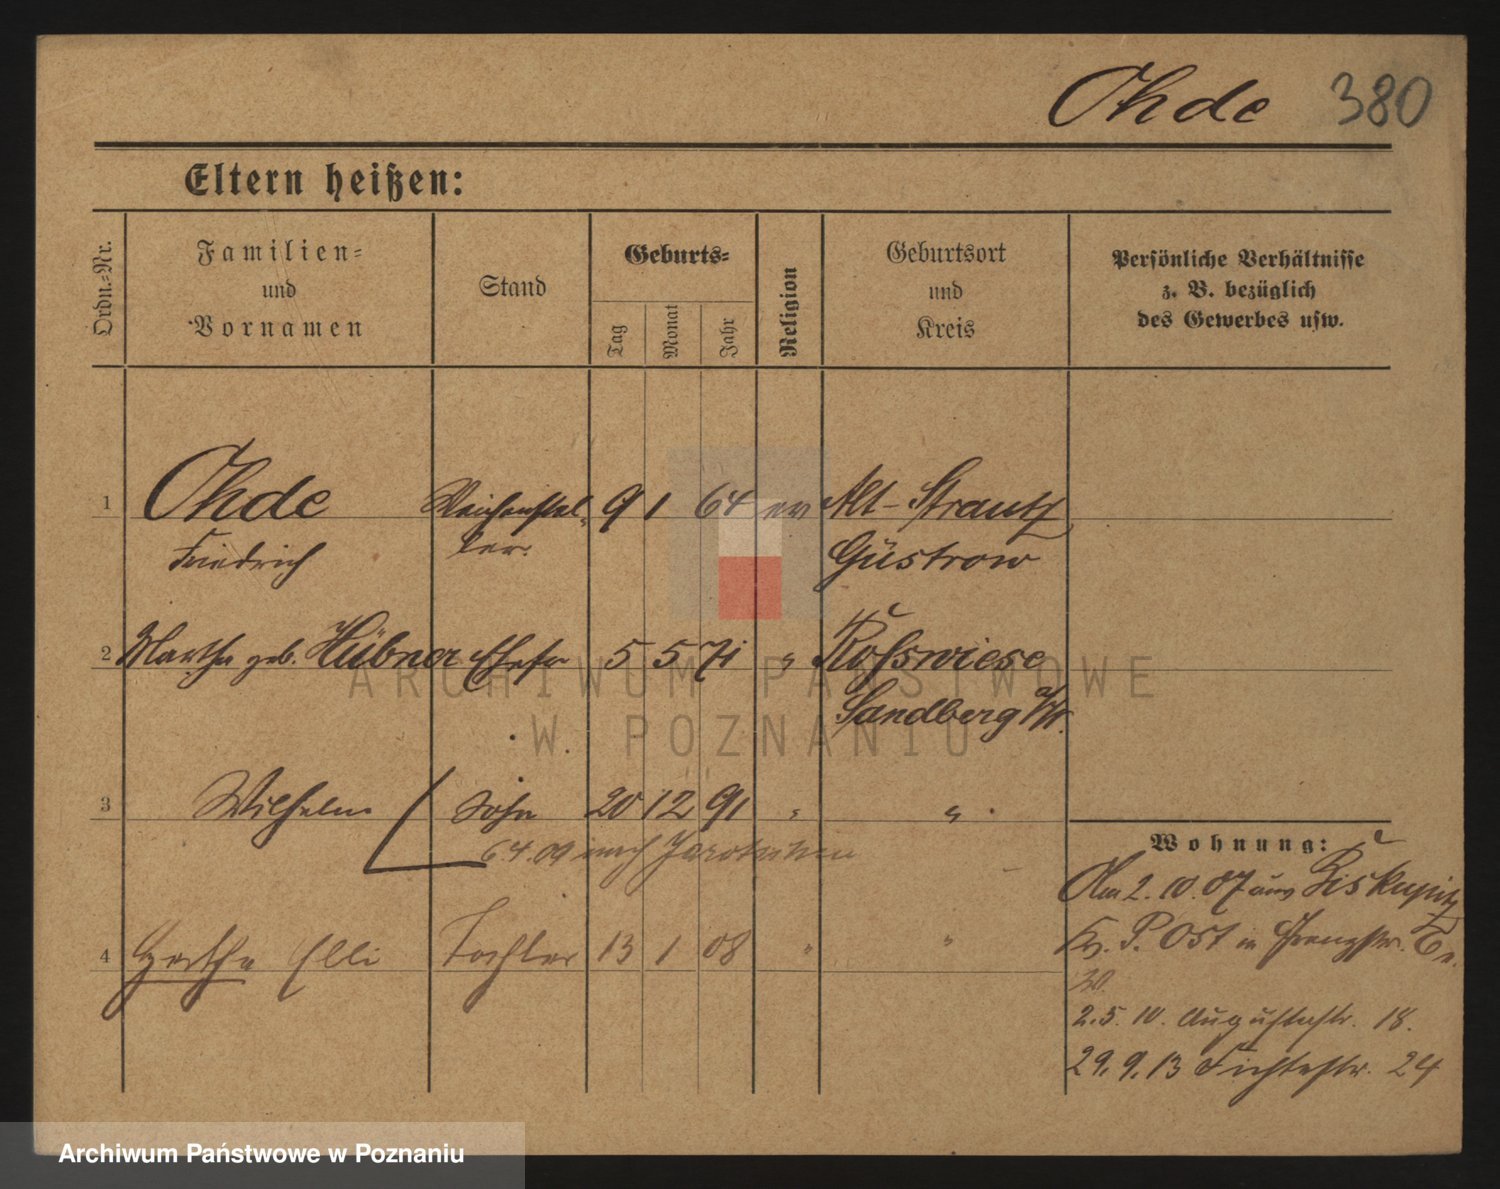 Ohde 380
Eltern heißen:
Ordn.=Nr.
Familien=
und
Vornamen
Stand
Geburts=
Tag
Monat
Jahr
Religion
Geburtsort
und
Kreis
Persönliche Verhältnisse
z. B. bezüglich
des Gewerbes usw.
1 Ohde Weichenstel= 9 1 64 ev Alt-Strautz
Friedrich ler. Güstrow
2 Martha geb. Hübner Ehefr 5 5 71 " Roßwiese
Sandberg a/W.
3 Wilhelm Sohn 20 12 91 " "
6.4.09 nach
Wohnung:
Am 2.10.07 aus Biskupitz
Kr. P. Ost in
30.
4 Gertha Elli Tochter 13 1 08 " "
2.5.10. Augustastr. 18.
29.9.13 Fichtestr. 24
ARCHIWUM PAŃSTWOWE
W POZNANIU
Archiwum Państwowe w Poznaniu